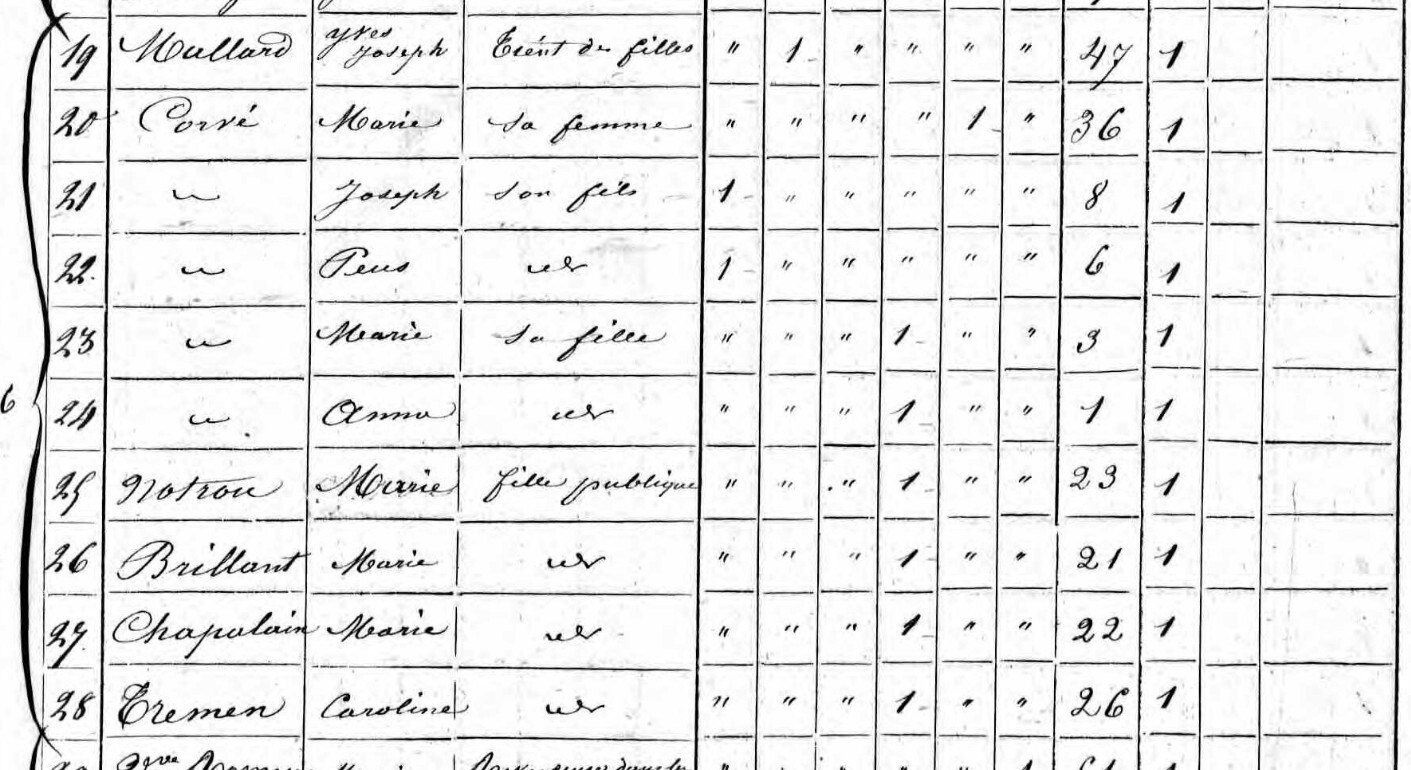 19 Mallard Yves Joseph Tient des filles " 1 " " " " 47 1
20 Corvé Marie Sa femme " " " " 1 " 36 1
21 " Joseph Son fils 1 " " " " " 8 1
22 " id 1 " " " " " 6 1
23 " Marie Sa fille " " " 1 " " 3 1
24 " Anna id " " " 1 " " 1 1
25 Marie fille publique " " " 1 " " 23 1
26 Brillant Marie id " " " 1 " " 21 1
27 Chapalain Marie id " " " 1 " " 22 1
6
28 Tremen Caroline id " " " 1 " " 26 1